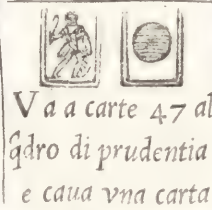 Va a carte 47 al
q̃dro di prudentia
e caua vna carta